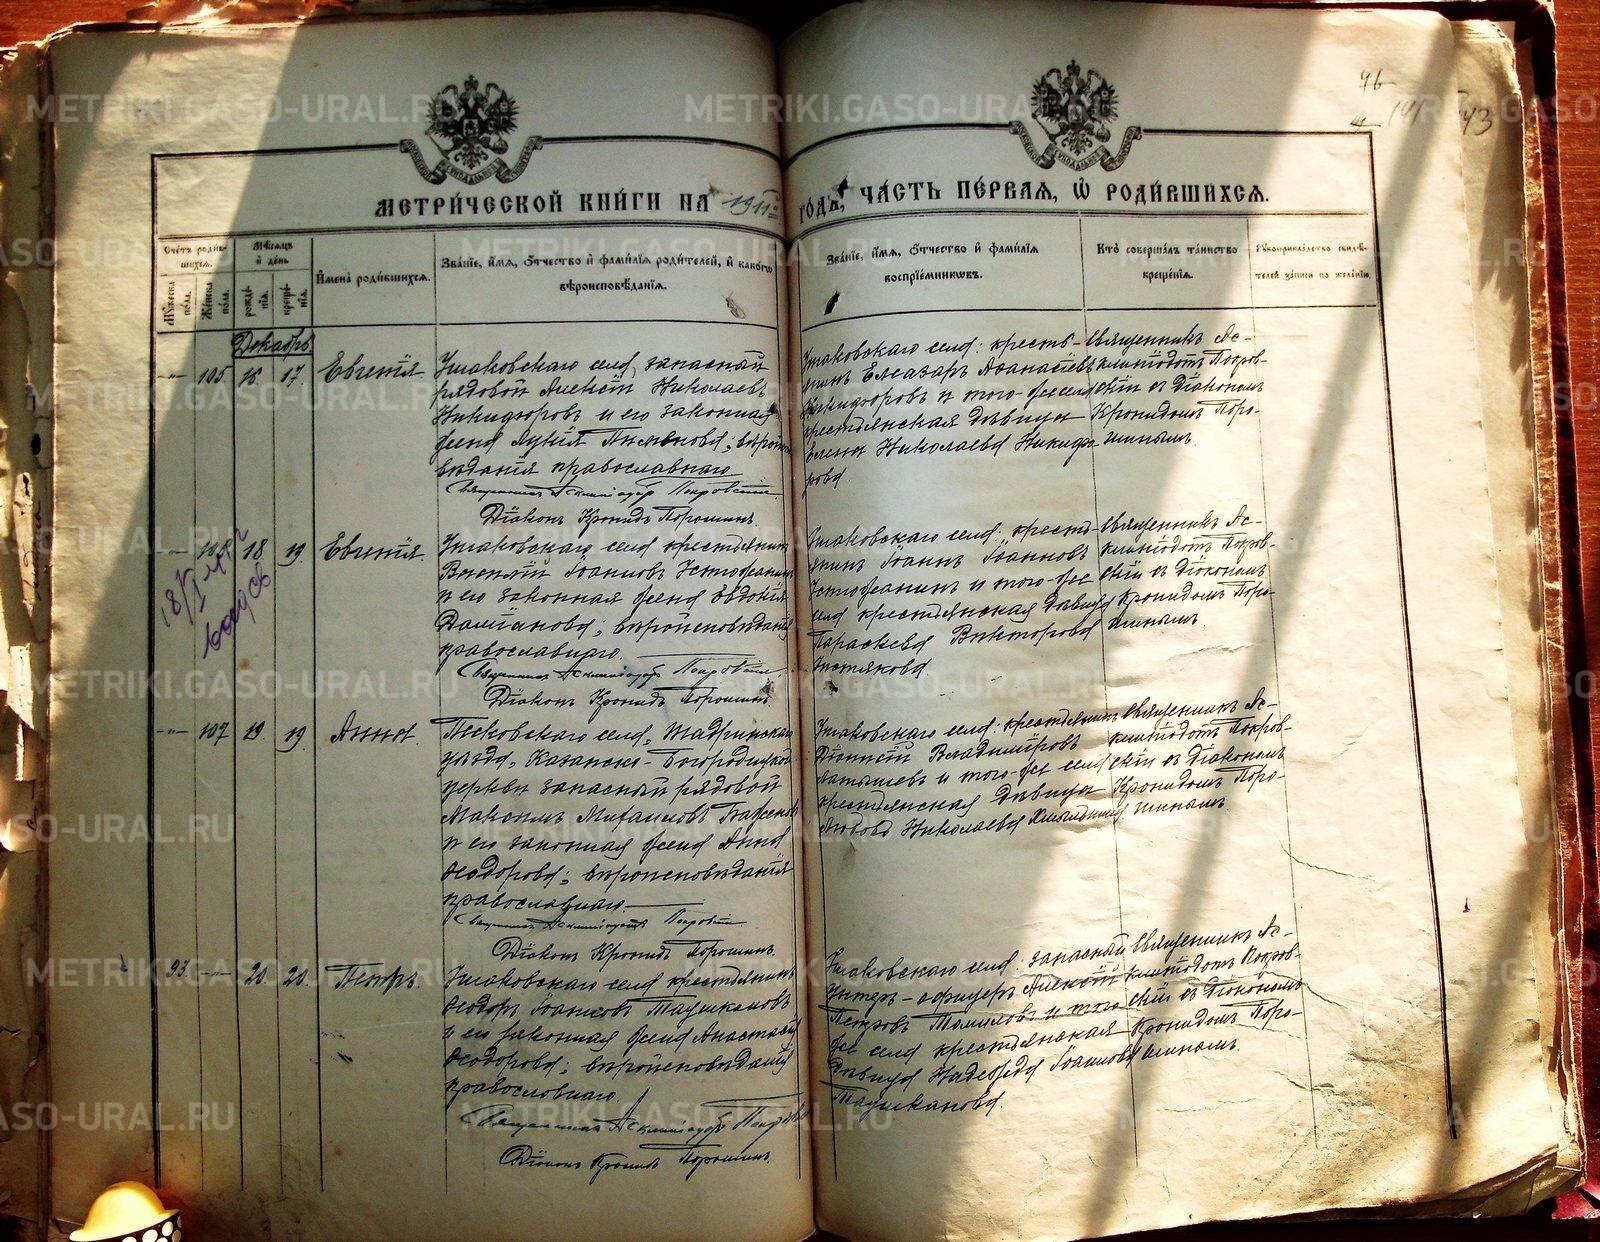 МЕТРИ́ЧЕСКОЙ КНИ́ГИ НА 1911 ГОДЪ, ЧА́СТЬ ПЕ́РВАѦ, Ѡ҆ РОДИ́ВШИХСѦ.
Сче́тъ роди́в-
шихсѧ.
Мꙋ́жеска пола.
Же́нска пола.
Мѣ́сѧцъ и҆ де́нь
рожде́нїѧ.
креще́нїѧ.
И҆мена̀ роди́вшихсѧ.
Зва́нїе, и҆́мѧ, ѻ҆́тчество и҆ фами́лїѧ роди́телей, и҆ како́гѡ
вѣроисповѣ́данїѧ.
Зва́нїе, и҆́мѧ, ѻ҆́тчество и҆ фами́лїѧ
воспрїе́мникѡвъ.
Кто̀ соверша́лъ та́инство
креще́нїѧ.
Рꙋкоприкла́дство свидѣ́-
телей за́писи по жела́нїю.
Декабрь
105 16 17. Евгенія
Ушаковскаго села, запасный
рядовой Алексій Николаевъ
Никифоровъ и его законная
жена Лукія Пименова; вѣроиспо-
вѣданія православнаго
Священникъ Асклипіодотъ Покровскій
Діаконъ Кронидъ Порошинъ.
Ушаковскаго села: кресть-
янинъ Елеазаръ Аѳанасіевъ
Никифоровъ и того-же села
крестьянская дѣвица
Елена Николаева Никифо-
рова.
Священникъ Ас-
клипіодотъ Покров-
скій съ діакономъ
Кронидомъ Поро-
шинымъ.
18 19. Евгенія.
Ушаковскаго села крестьянинъ
Василій Іоанновъ Устюжанинъ
и его законная жена Евдокія
Даміанова; вѣроисповѣданія
православнаго.
Священникъ Асклипіодотъ Покровскій
Діаконъ Кронидъ Порошинъ.
Ушаковскаго села: кресть-
янинъ Іоаннъ Іоанновъ
Устюжанинъ и того-же
села крестьянская дѣвица
Параскева Викторова
Священникъ Ас-
клипіодотъ Покров-
скій съ діакономъ
Кронидомъ Поро-
шинымъ.
107 19. 19. Анна.
Песковскаго села, Шадринскаго
уѣзда, Казанско-Богородицкой
церкви запасный рядовой
Максимъ Михаиловъ Баженовъ
и его законная жена Анна
Ѳеодорова; вѣроисповѣданія
православнаго.
Священникъ Асклипіодотъ Покровскій
Діаконъ Кронидъ Порошинъ.
Ушаковскаго села: крестьянинъ
Діонисій Владиміровъ
Латышевъ и того-же села
крестьянская дѣвица
Любовь Николаева
Священникъ Ас-
клипіодотъ Покров-
скій съ діакономъ
Кронидомъ Поро-
шинымъ.
93. 20. 20. Петръ.
Ушаковскаго села крестьянинъ
Ѳеодоръ Іоанновъ Таушкановъ
и его законная жена Анастасія
Ѳеодорова; вѣроисповѣданія
православнаго.
Священникъ Асклипіодотъ Покровскій
Діаконъ Кронидъ Порошинъ.
Ушаковскаго села: запасный
унтеръ-офицеръ Алексій
Петровъ Томиловъ и того
же села крестьянская
дѣвица Надежда Іоаннова
Таушканова.
Священникъ Ас-
клипіодотъ Покров-
скій съ діакономъ
Кронидомъ Поро-
шинымъ.
METRIKI.GASO-URAL.RU